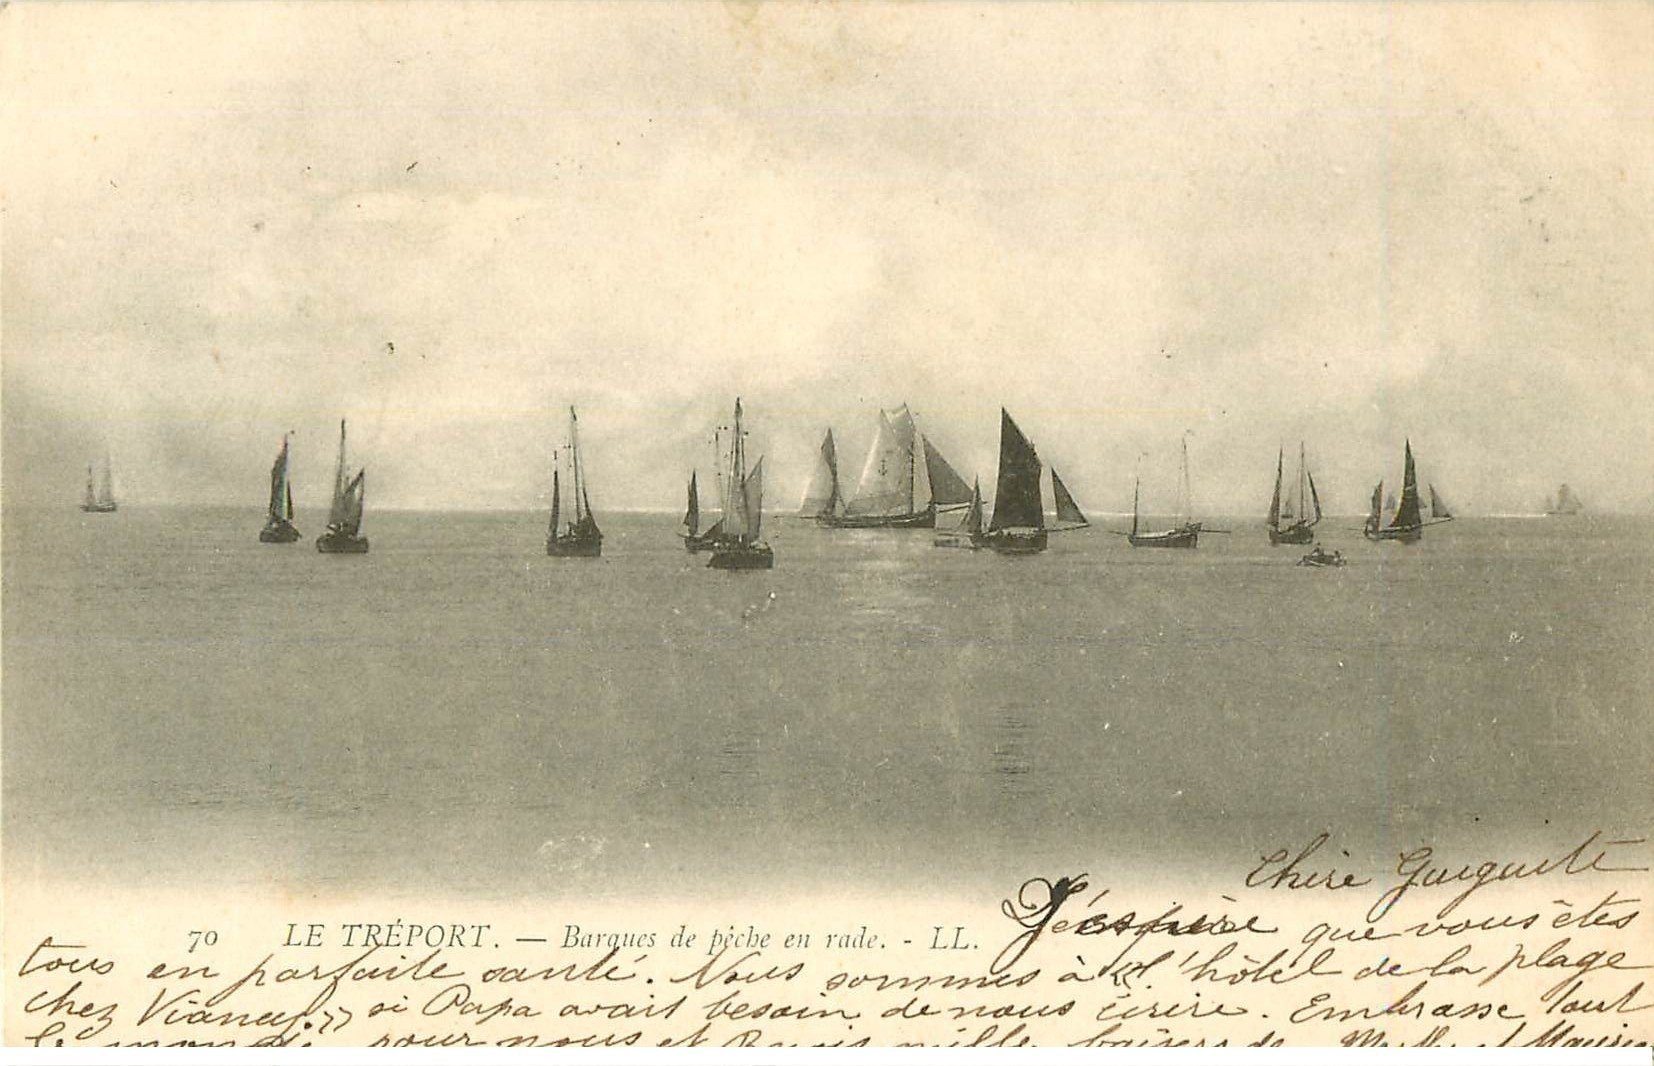 Chère Guiguite
J'espère que vous êtes
70 LE TRÉPORT. — Barques de pêche en rade. - LL.
tous en parfaite santé. Nous sommes à « l'hôtel de la plage
chez Vianey. » si Papa avait besoin de nous écrire. Embrasse tout
le monde pour nous et Reçois mille baisers de et Maurice